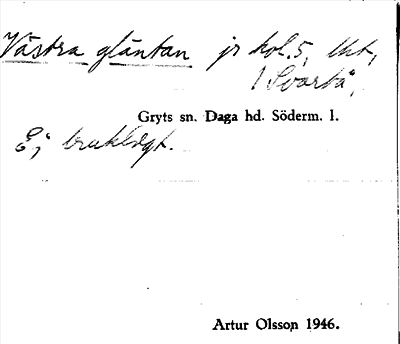 Västra gläntan jr kol. 5, Utt,
1 Svartå,
Gryts sn. Daga hd. Söderm. l.
Ej brukligt.
Artur Olsson 1946.